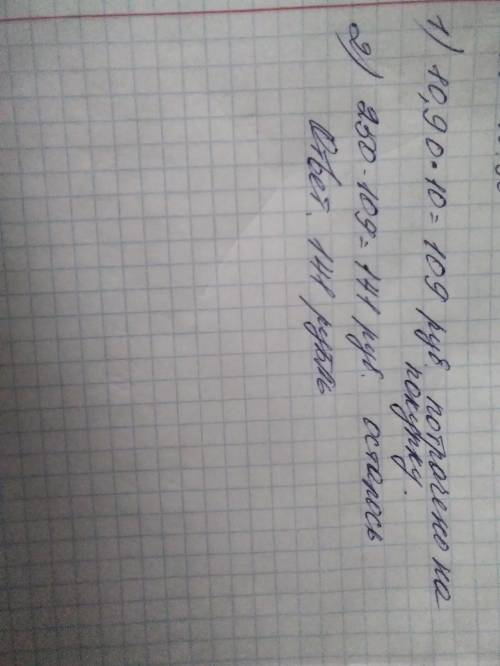 1) 10,90·10=109 руб. потрачено на
покупку.
2) 250-109=141 руб. осталось
Ответ. 141 рубль